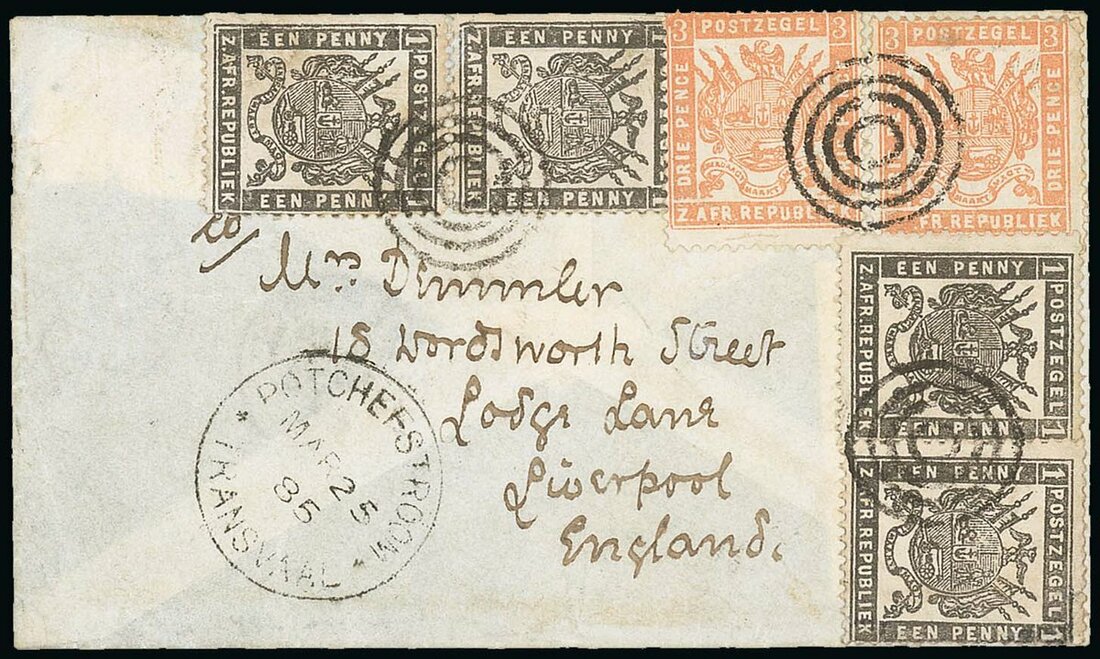 EEN PENNY
1 POSTZEGEL 1
Z.AFR.REPUBLIEK
EEN PENNY
EEN PENNY
Z.AFR.REPUBLIEK
EEN PENNY
3 POSTZEGEL 3
DRIE PENCE
Z AFR. REPUBLIEK
POSTZEGEL 3
DRIE PENCE
FR. REPUBLIEK
to/
Mrs Dimmler
18 Wordsworth Street
Lodge Lane
Liverpool
England.
POTCHEFSTROOM
MAR 25
85
TRANSVAAL
EEN PENNY
1 POSTZEGEL 1
Z.AFR.REPUBLIEK
EEN PENNY
EEN PENNY
1 POSTZEGEL 1
Z.AFR.REPUBLIEK
EEN PENNY